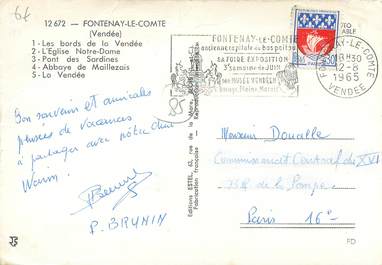 12 672 - FONTENAY-LE-COMTE
(Vendée)
1 - Les bords de la Vendée
2 - L'Eglise Notre-Dame
3 - Pont des Sardines
4 - Abbaye de Maillezais
5 - La Vendée
FONTENAY-LE-COMTE
ancienne capitale du bas poitou
SA FOIRE EXPOSITION
3e semaine de JUIN
FONTENAY-LE-COMTE
18H30
12-8
1965
VENDEE
Bon souvenir et amicales
pensées de vacances
à partager avec notre cher
P. BRUNIN
Editions ESTEL, 63, rue de la Mare,
Fabrication française
Monsieur Donalle
Commissariat Central du XVI
rue de la Pompe
Paris 16e
FD